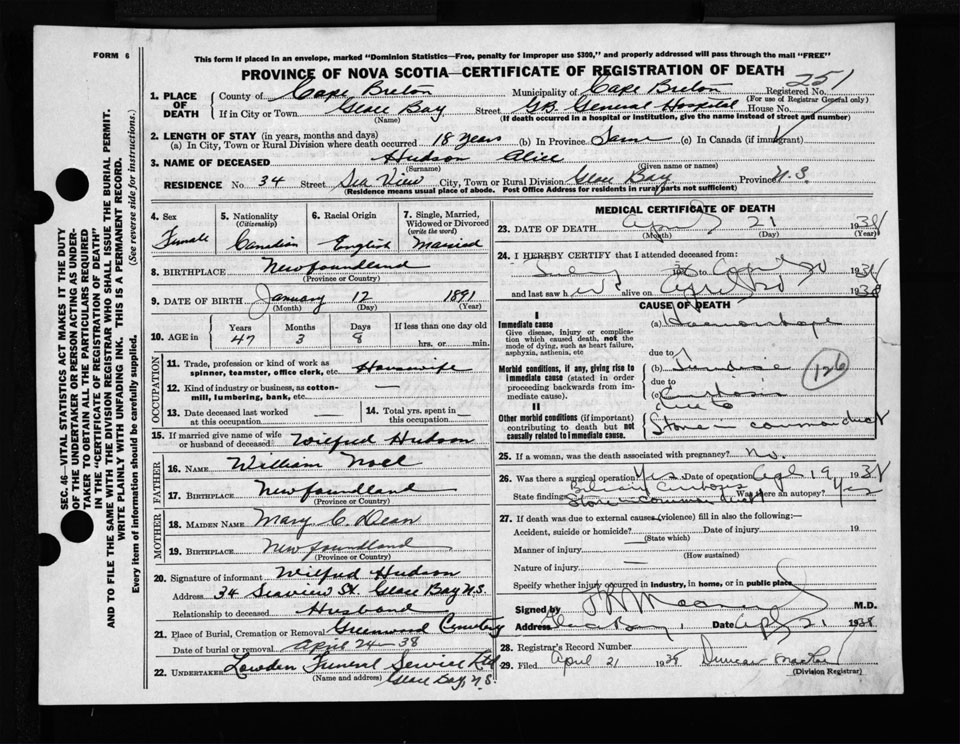 FORM 6
This form if placed in an envelope, marked "Dominion Statistics—Free, penalty for improper use $300," and properly addressed will pass through the mail "FREE"
PROVINCE OF NOVA SCOTIA—CERTIFICATE OF REGISTRATION OF DEATH
251
1. PLACE OF DEATH
County of Cape Breton Municipality of Cape Breton Registered No.
(For use of Registrar General only)
If in City or Town Glace Bay Street G.B. General Hospital House No.
(Name) (If death occurred in a hospital or institution, give the name instead of street and number)
2. LENGTH OF STAY (in years, months and days)
(a) In City, Town or Rural Division where death occurred 18 years (b) In Province Same (c) In Canada (if immigrant)
3. NAME OF DECEASED Hudson Alice
(Surname) (Given name or names)
RESIDENCE No 34 Street Sea View City, Town or Rural Division Glace Bay Province N.S.
(Residence means usual place of abode. Post Office Address for residents in rural parts not sufficient)
4. Sex
Female
5. Nationality
(Citizenship)
Canadian
6. Racial Origin
English
7. Single, Married,
Widowed or Divorced
(write the word)
Married
8. BIRTHPLACE Newfoundland
(Province or Country)
9. DATE OF BIRTH January 12 1891
(Month) (Day) (Year)
10. AGE in
Years Months Days If less than one day old
47 3 8 hrs. or min.
OCCUPATION
11. Trade, profession or kind of work as
spinner, teamster, office clerk, etc. Housewife
12. Kind of industry or business, as cotton-
mill, lumbering, bank, etc. —
13. Date deceased last worked
at this occupation —
14. Total yrs. spent in
this occupation —
15. If married give name of wife
or husband of deceased Wilfred Hudson
FATHER
16. NAME William Noel
17. BIRTHPLACE Newfoundland
(Province or Country)
MOTHER
18. MAIDEN NAME Mary C. Dean
19. BIRTHPLACE Newfoundland
(Province or Country)
20. Signature of informant Wilfred Hudson
Address 34 Seaview St. Glace Bay N.S.
Relationship to deceased Husband
21. Place of Burial, Cremation or Removal Greenwood Cemetery
Date of burial or removal April 24—38
22. UNDERTAKER Lowden Funeral Service Ltd
(Name and address) Glace Bay, N.S.
MEDICAL CERTIFICATE OF DEATH
23. DATE OF DEATH April 21 1938
(Month) (Day) (Year)
24. I HEREBY CERTIFY that I attended deceased from:
to April 20 1938
and last saw her alive on April 20 1938
CAUSE OF DEATH
I
Immediate cause
Give disease, injury or complica-
tion which caused death, not the
mode of dying, such as heart failure,
asphyxia, asthenia, etc
(a) Haemorrhage
due to
Morbid conditions, if any, giving rise to
immediate cause (stated in order
proceeding backwards from im-
mediate cause).
(b) Jaundice
due to
(c) Cirrhosis
due to
126
II
Other morbid conditions (if important)
contributing to death but not
causally related to immediate cause.
Stone in common duct
25. If a woman, was the death associated with pregnancy? No.
26. Was there a surgical operation? Yes Date of operation Apl 19 1938
State finding Biliary Cirrhosis Was there an autopsy? Yes
Stone in common duct
27. If death was due to external causes (violence) fill in also the following:—
Accident, suicide or homicide? Date of injury 19
(State which)
Manner of injury
(How sustained)
Nature of injury —
Specify whether injury occurred in industry, in home, or in public place
Signed by M.D.
Address Glace Bay, Date Apl 21 1938
28. Registrar's Record Number
29. Filed April 21 1938 Duncan
(Division Registrar)
SEC. 46—VITAL STATISTICS ACT MAKES IT THE DUTY
OF THE UNDERTAKER OR PERSON ACTING AS UNDER-
TAKER TO OBTAIN ALL THE PARTICULARS REQUIRED
IN THE "CERTIFICATE OF REGISTRATION OF DEATH"
AND TO FILE THE SAME WITH THE DIVISION REGISTRAR WHO SHALL ISSUE THE BURIAL PERMIT.
WRITE PLAINLY WITH UNFADING INK. THIS IS A PERMANENT RECORD.
Every item of information should be carefully supplied. (See reverse side for instructions.)